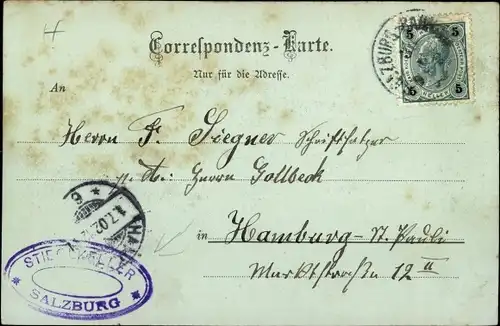 Correspondenz-Karte.
Nur für die Adresse.
An
Herrn F. Siegner Schriftsetzer
Herrn Gollbeck
in Hamburg-St. Pauli
Marktstraße 12 II
SALZBURG
5 5
5 5
1.7.02
STIEGLKELLER
SALZBURG